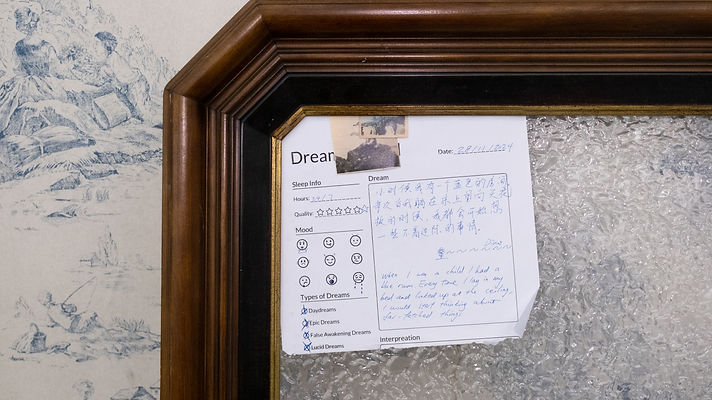 Drea
Date: 28/11/2024
Sleep Info
Hours: 24/7
Quality:
Mood
Types of Dreams
Daydreams
Epic Dreams
False Awakening Dreams
Lucid Dreams
Dream
小时候我有一个蓝色的房间
每次当我躺在床上望向天花
板的时候，我都会开始想
一些不着边际的事情。
When I was a child I had a
blue room. Every time I lay in my
bed and looked up at the ceiling,
I would start thinking about
far-fetched things.
Interpreation